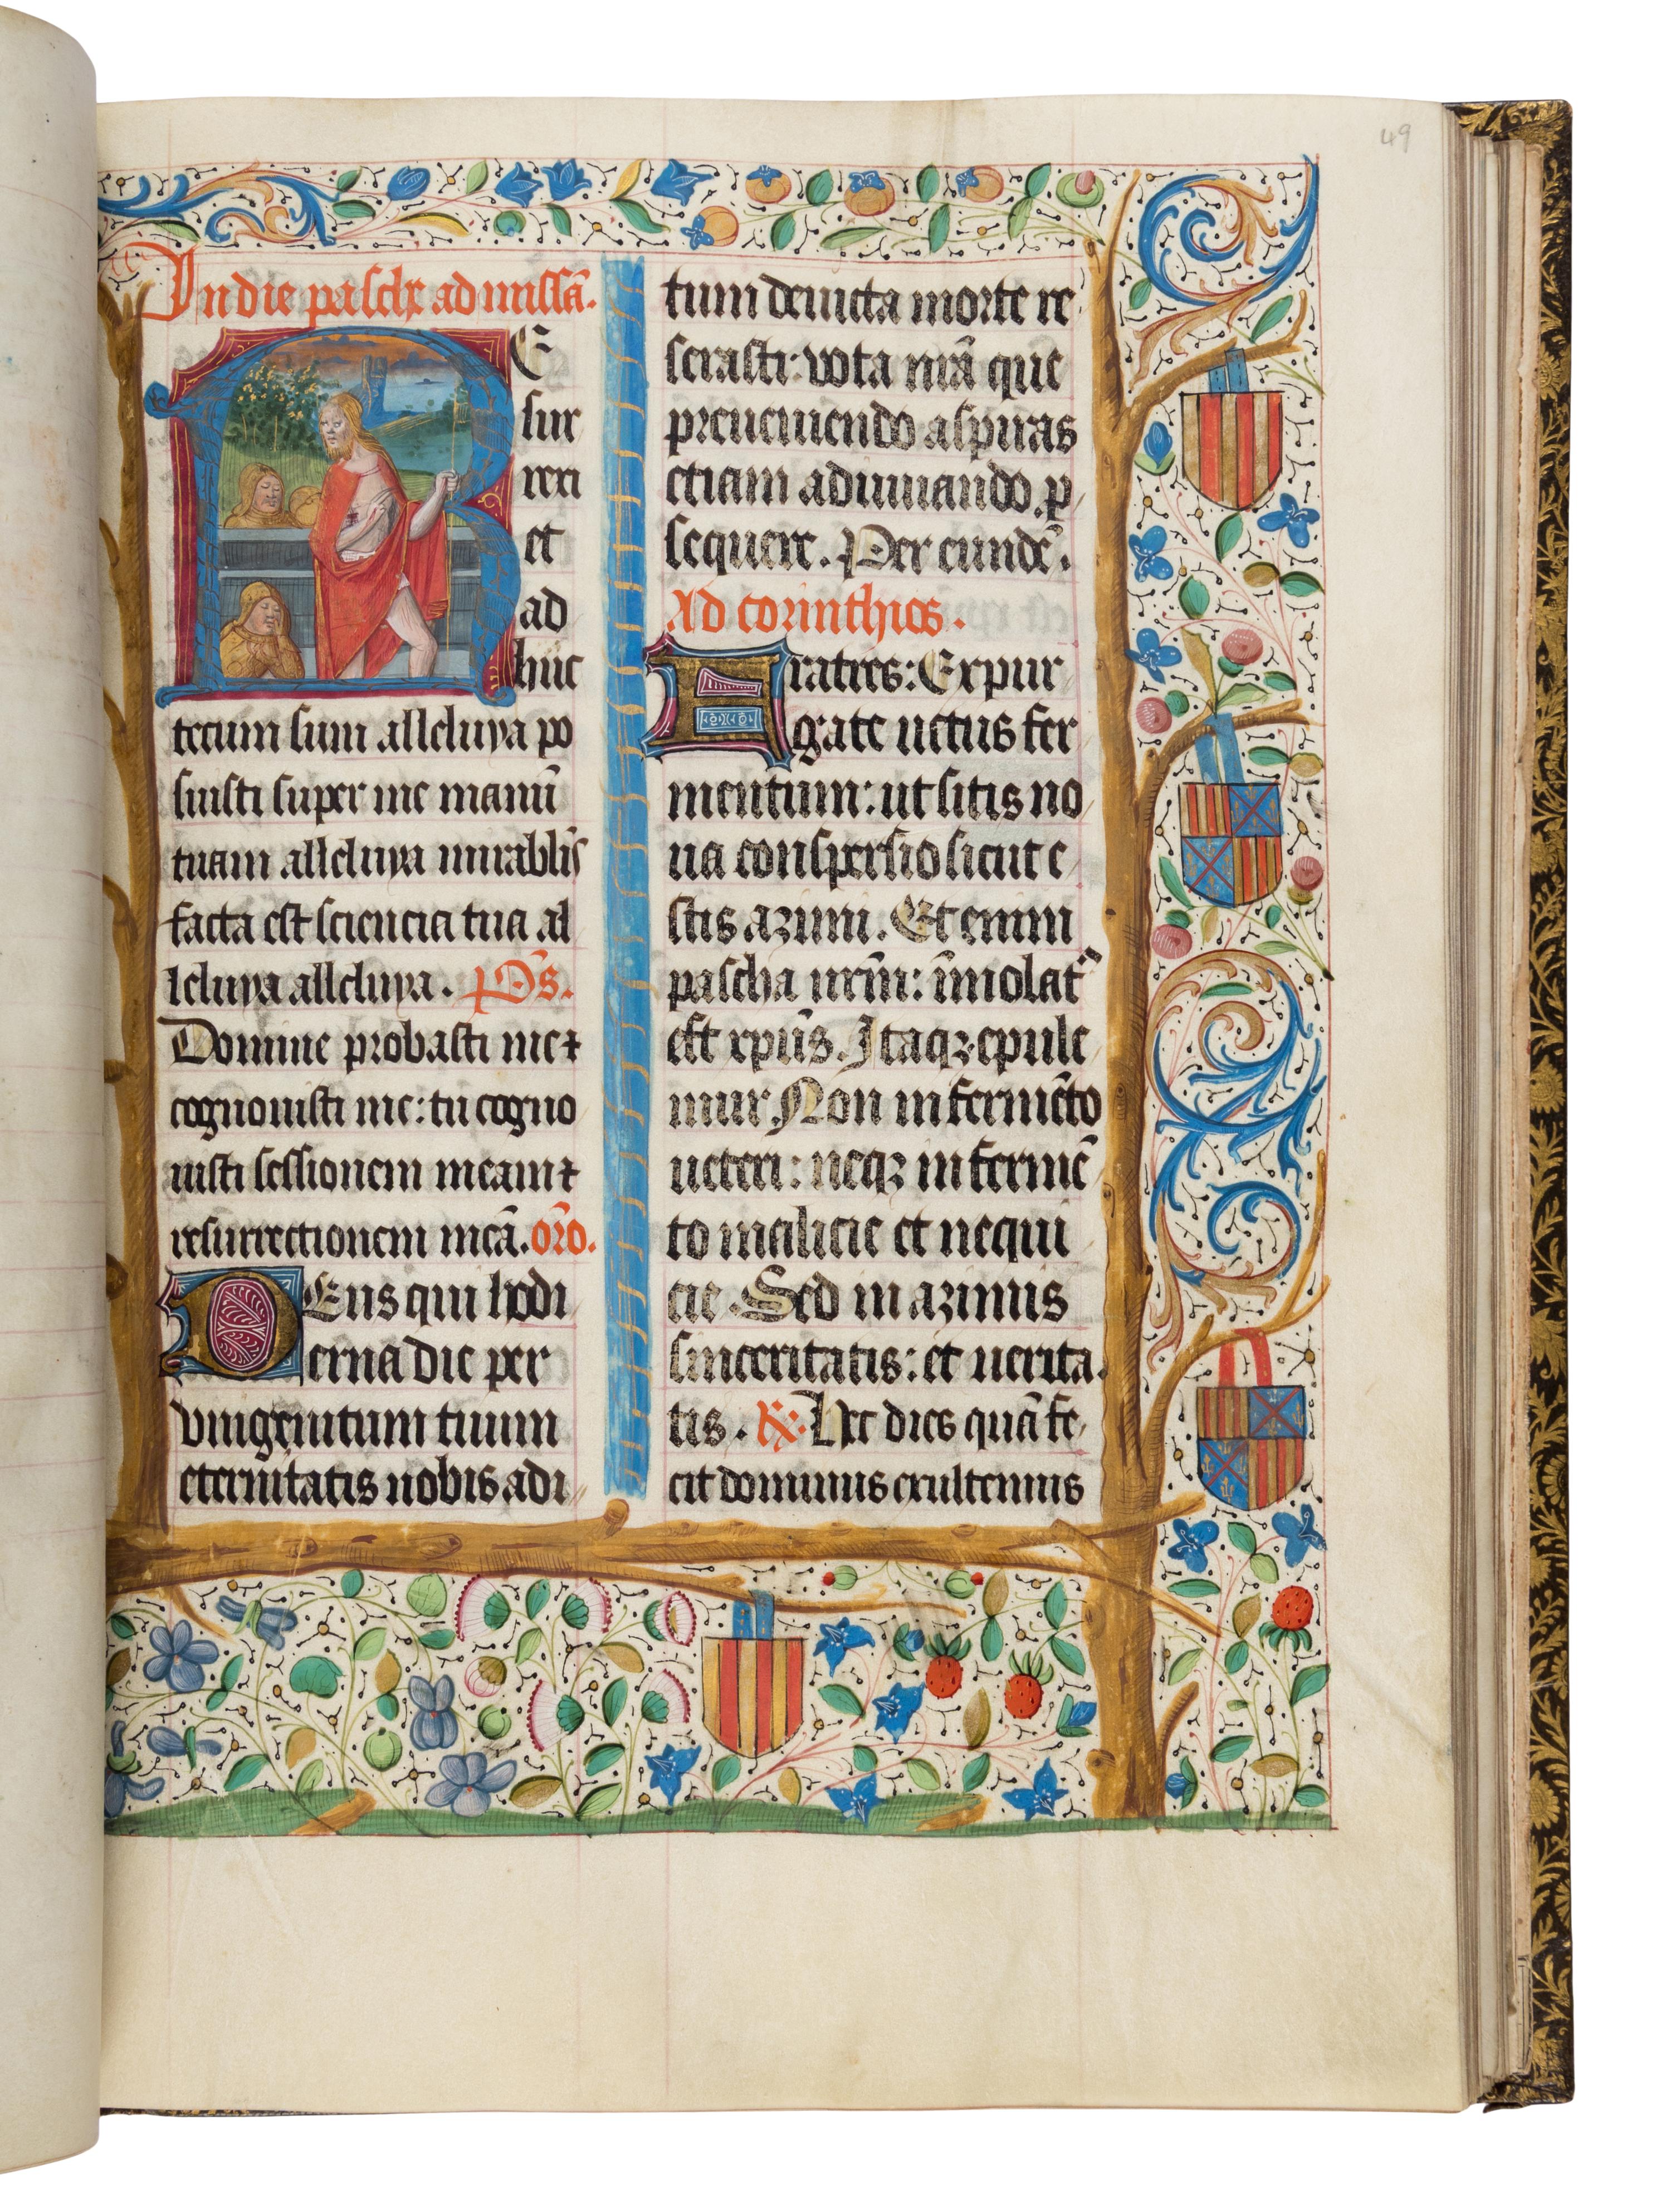 49
In die pasche ad missã.
RE
sur
rexi
et
ad
huc
tecum sum alleluya po
suisti super me manũ
tuam alleluya mirabil'
facta est sciencia tua al
leluya alleluya. Ps̃.
Domine probasti me ⁊
cognouisti me: tu cogno
uisti sessionem meam ⁊
resurrectionem meã. orõ.
DEus qui hodi
erna die per
vnigenitum tuum
eternitatis nobis adi
tum deuicta morte re
serasti: vota nr̃a que
preueniendo aspiras
etiam adiuuando ꝓ
sequere. Per eundẽ.
Ad corinthios.
Fratres: Expur
gate uetus fer
mentum: ut sitis no
ua conspersio sicut e
stis azimi. Et enim
pascha nr̃m: ĩmolat᷑
est xpũs. Itaqꝫ epule
mur Non in fermẽto
ueteri: neqꝫ in fermẽ
to malicie et nequi
cie. Sed in azimis
sinceritatis: et uerita
tis. ℟: Hec dies quã fe
cit dominus exultemus